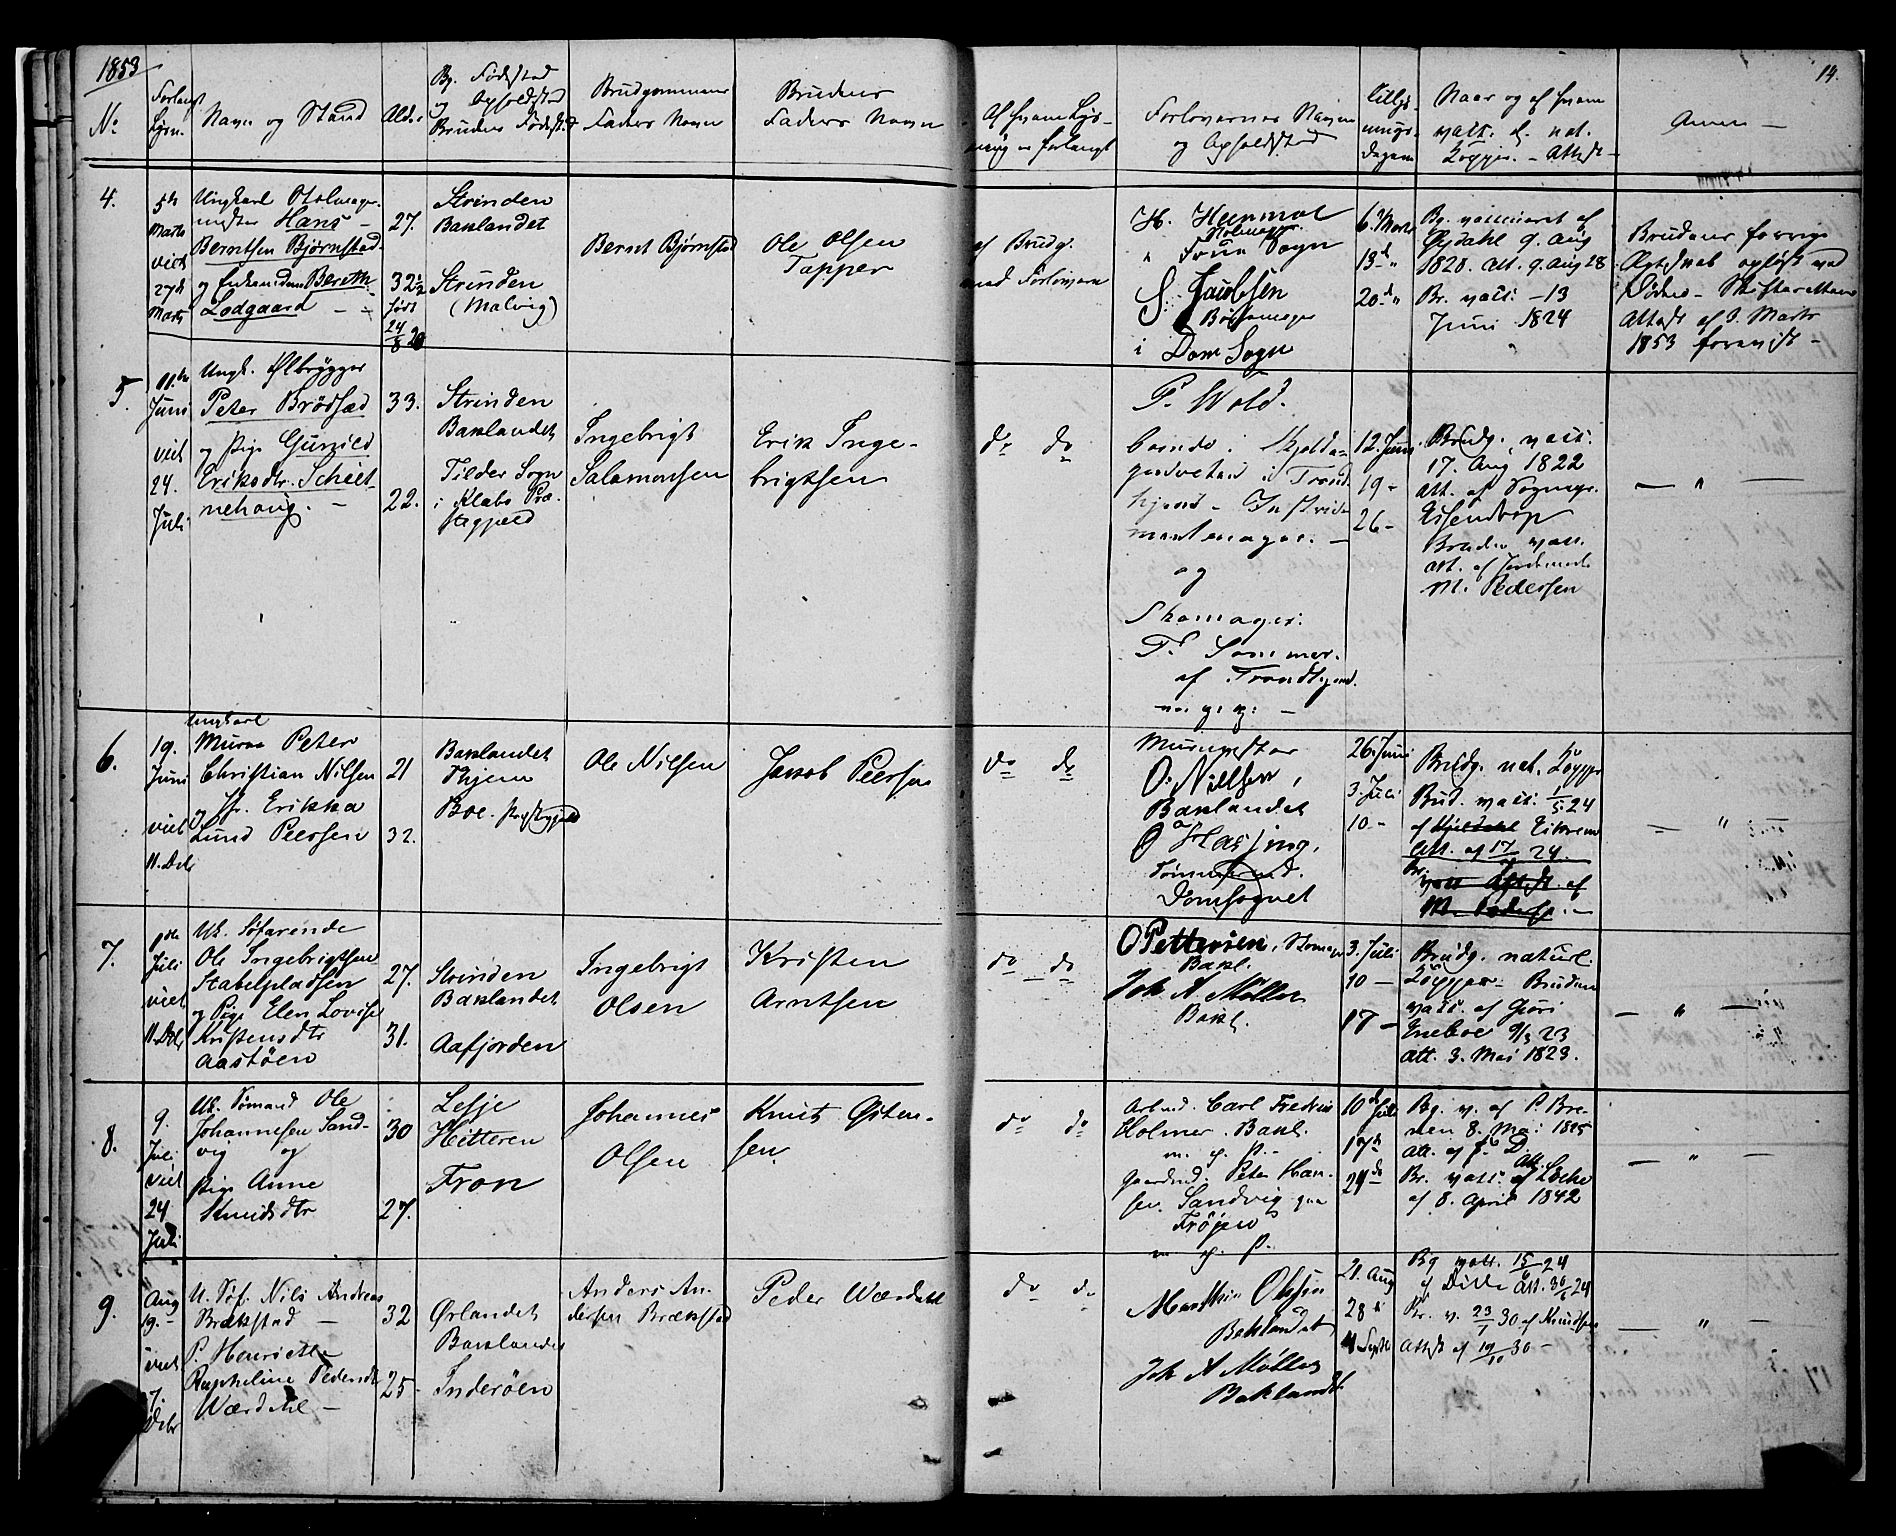 1853
14.
No
Forlangt
Lysn.
Navn og Stand
Alder
Bg. Fødested
og Opholdsted
Brudens Fødested
Brudgommens
Faders Navn
Brudens
Faders Navn
Af hvem Lys-
ning er forlangt
Forlovernes Navn
og Opholdsted
Tillys-
nings-
dagene
Naar og af hvem
vacc. l. nat.
Kopper. - Attest -
Anm -
4.
5te
Marts
viet
27de
Marts
Ungkarl
Hans -
Berntsen Bjørnstad
og Enkemadam Bereth
Lodgaard - -
27.
32½
født
24/8 20
Strinden
Baklandet
Strinden
(Malvig)
Bernt Bjørnstad
Ole Olsen
Tapper
af Brudg.
med Forlovere
H.
i Frue Sogn
S. Jacobsen
Bøssemager
i Dom Sogn
6 Marts
13d "
20d "
Bg. vaccineret af
Øxdahl 9. Aug
1828. Att. 9. Aug 28
Br. vacc. - 13
Juni - 1824
Brudens forrige
Ægteskab opløst ved
Døden - Skifterettens
Attest af 3. Marts
1853 forevist -
5.
11te
Juni
viet
24.
Juli
Ungk. Ølbrygger
Peter Brødsæd
og Pige Gunild
Eriksdtr. Schiet-
nehaug. -
33.
22.
Strinden
Baklandet
Tilder Sogn
i Klæbo Præ-
stegjeld
Ingebrigt
Salamonsen
Erik Inge-
brigtsen
do do
P. Wold.
boende i
i Trond
hjem - Instru
mentmager. -
og
Skomager:
P. Sommer.
af Trondhjem.
-
12. Juni
19 -
26 -
Brudg. vacc.
17. Aug 1822
Att. af Sognepr.
Bruden vacc.
att. af Jordemoder
M. Pedersen
— " —
6.
19.
Juni
viet
11. Dcbr
Ungkarl
Murer Peter
Christian Nilsen
og Jfr. Erikka
Lund Peersen
21
32.
Baklandet
Thjem
Boe. Præstegjeld
Ole Nilsen
Jacob Peersen
do do
Murmester
O. Nillsen,
Baklandet
O Hasfing,
Tømmermd.
Domsognet
26. Juni
3. Juli
10 -
Brudg. nat. Kopper
Brud. vacc. 1/5 24
af Kjeldahl Eikrem
Att. af 17/7 24.
Br.
vacc Attest af
M. Peders. -
— " —
7.
1ste
Juli
viet
11. Dcbr
Uk. Søfarende
Ole Ingebrigtsen
Stabelpladsen
og Pige Elen Lovise
Kristensdtr
Aastøen
27.
31.
Strinden
Baklandet
Aafjorden
Ingebrigt
Olsen
Kristen
Arntsen
do do
O Pettersen, Skomager
Bakl.
Joh A Møller
Bakl.
3. Juli
10 -
17 -
Brudg. naturl.
Kopper - Bruden
vacc. af Guri
Eneboe 9/3 23
att. 3. Mai 1823.
— " —
8.
9.
Juli
viet
24
Juli
Uk. Sømand Ole
Johannesen Sand-
vig og
Pige Anne
Knudsdtr
30
27.
Lesje
Hitteren
Fron
Johannes
Olsen
Knut Østen-
sen
do do
Arbmd. Carl Fredrik
Holmer. Bakl.
m. p. P. -
Gaardmd. Peter Han-
sen. Sandvig paa
Frøjen
m. p. P.
10d Juli
17d
24de
Bg. v. af P. Bre-
men 8. Mai 1825
att. af f. D.
Br. vacc. Att. af Locke
af 8. April 1842
— " —
9.
Aug
19. -
viet
7.
Dcbr
U. Søf. Nils Andreas
Brækstad -
P. Henriette
Rapheline Pedersdtr
Wærdahl -
32
25 -
Ørlandet
Baklandet
Inderøen
Anders An-
dersen Brækstad
Peder Wærdahl
do do
Olssen
Baklandet
Joh A Møller
Baklandet
21. Aug
28de
4 Septbr
Bg vacc. 15/6 24
af Ditto Att. 30/6 24
Br. v. 23/7 30 af Knudsen
Attest af 19/10 30 -
— " —